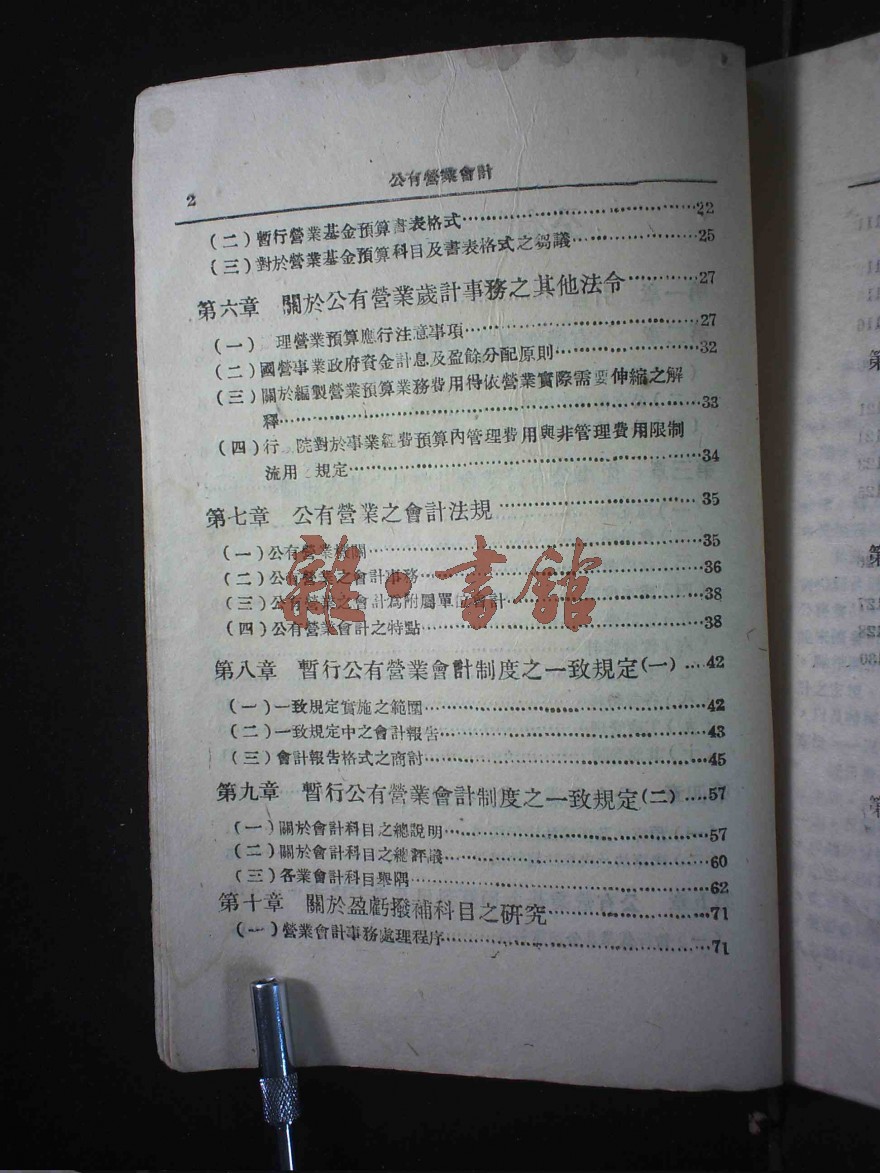 2
公有營業會計
(二)暫行營業基金預算書表格式……22
(三)對於營業基金預算科目及書表格式之芻議……25
第六章 關於公有營業歲計事務之其他法令……27
(一) 理營業預算應行注意事項……27
(二)國營事業政府資金計息及盈餘分配原則……32
(三)關於編製營業預算業務費用得依營業實際需要伸縮之解
釋……33
(四)行 院對於事業經費預算內管理費用與非管理費用限制
流用 規定……34
第七章 公有營業之會計法規……35
(一)公有營業機關……35
(二)公有營業之會計事務……36
(三)公有營業之會計為附屬單位會計……38
(四)公有營業會計之特點……38
第八章 暫行公有營業會計制度之一致規定(一)…42
(一)一致規定實施之範圍……42
(二)一致規定中之會計報告……43
(三)會計報告格式之商討……45
第九章 暫行公有營業會計制度之一致規定(二)…57
(一)關於會計科目之總說明……57
(二)關於會計科目之總評議……60
(三)各業會計科目舉隅……62
第十章 關於盈虧撥補科目之研究……71
(一)營業會計事務處理程序……71
雜·書館